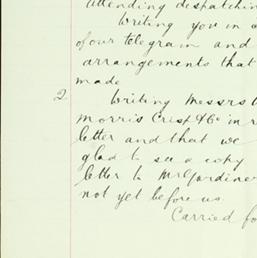 attending dispatchin
Writing you in a
of our telegram and
arrangements that
made
2. Writing Messrs
Morris Crisp & Co in r
letter and that we
glad to see a copy
letter to Mr Gardiner
not yet before us.
Carried fo